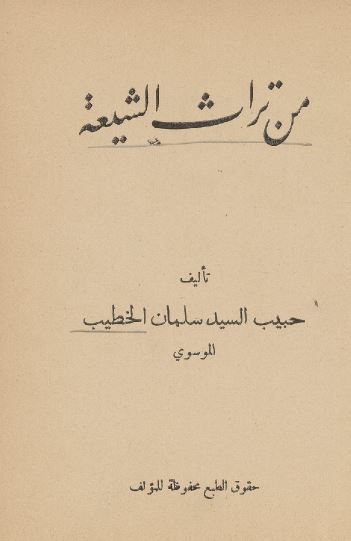 من تراث الشيعة
تأليف
حبيب السيد سلمان الخطيب
الموسوي
حقوق الطبع محفوظة للمؤلف